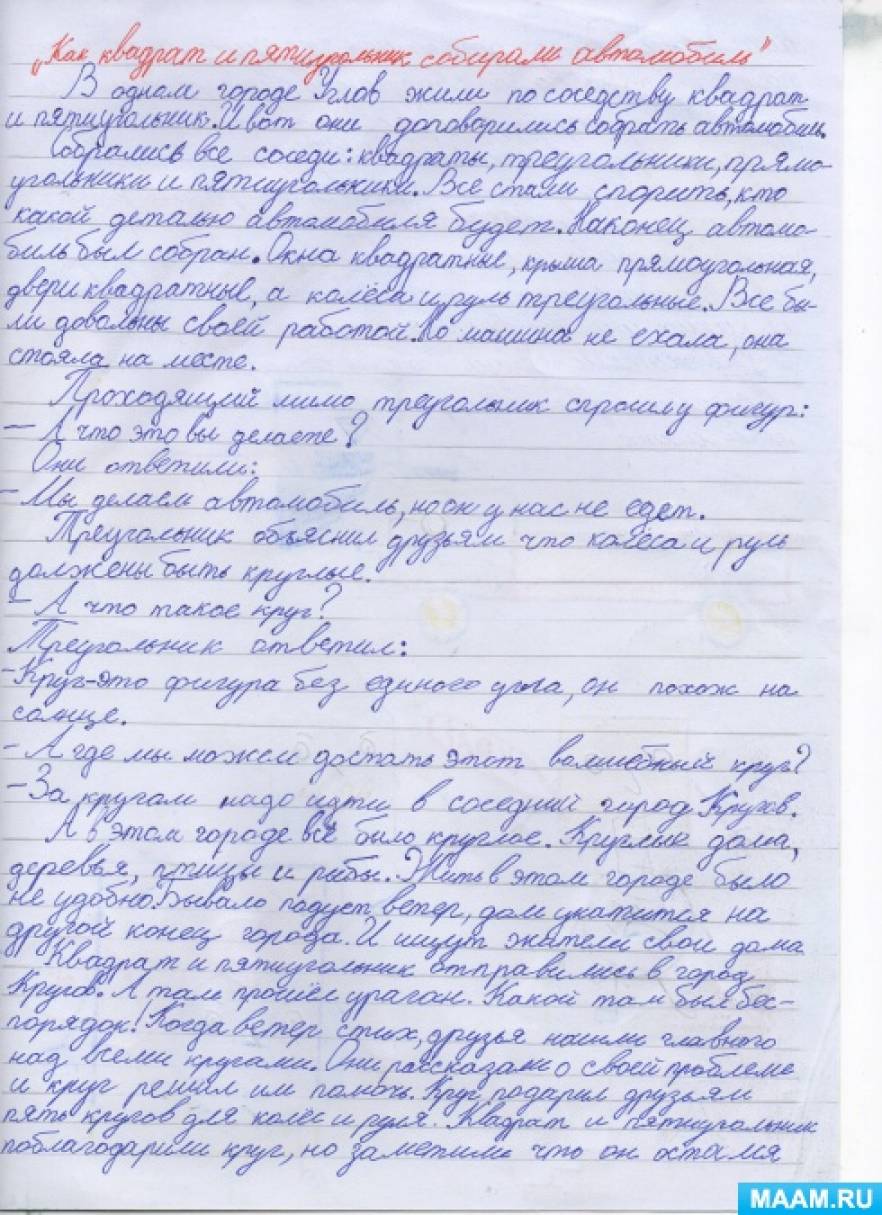 „Как квадрат и пятиугольник собирали автомобиль"
В одном городе Углов жили по соседству квадрат
и пятиугольник. И вот они договорились собрать автомобиль.
Собрались все соседи: квадраты, треугольники, прямо-
угольники и пятиугольники. Все стали спорить, кто
какой деталью автомобиля будет. Наконец автомо-
биль был собран. Окна квадратные, крыша прямоугольная,
двери квадратные, а колёса и руль треугольные. Все бы-
ли довольны своей работой. Но машина не ехала, она
стояла на месте.
Проходящий мимо треугольник спросил у фигур:
– А что это вы делаете?
Они ответили:
– Мы делаем автомобиль, но он у нас не едет.
Треугольник объяснил друзьям что колёса и руль
должены быть круглые.
– А что такое круг?
Треугольник ответил:
– Круг-это фигура без единого угла, он похож на
солнце.
– А где мы можем достать этот волшебный круг?
– За кругом надо идти в соседний город Кругов.
А в этом городе всё было круглое. Круглые дома,
деревья, птицы и рыбы. Жить в этом городе было
не удобно. Бывало подует ветер, дом укатится на
другой конец города. И ищут жители свои дома
Квадрат и пятиугольник отправились в город
Кругов. А там прошёл ураган. Какой там был бес-
порядок! Когда ветер стих, друзья нашли главного
над всеми кругами. Они рассказали о своей проблеме
и круг решил им помочь. Круг подарил друзьям
пять кругов для колёс и руля. Квадрат и пятиугольник
поблагодарили круг, но заметили что он остался
MAAM.RU